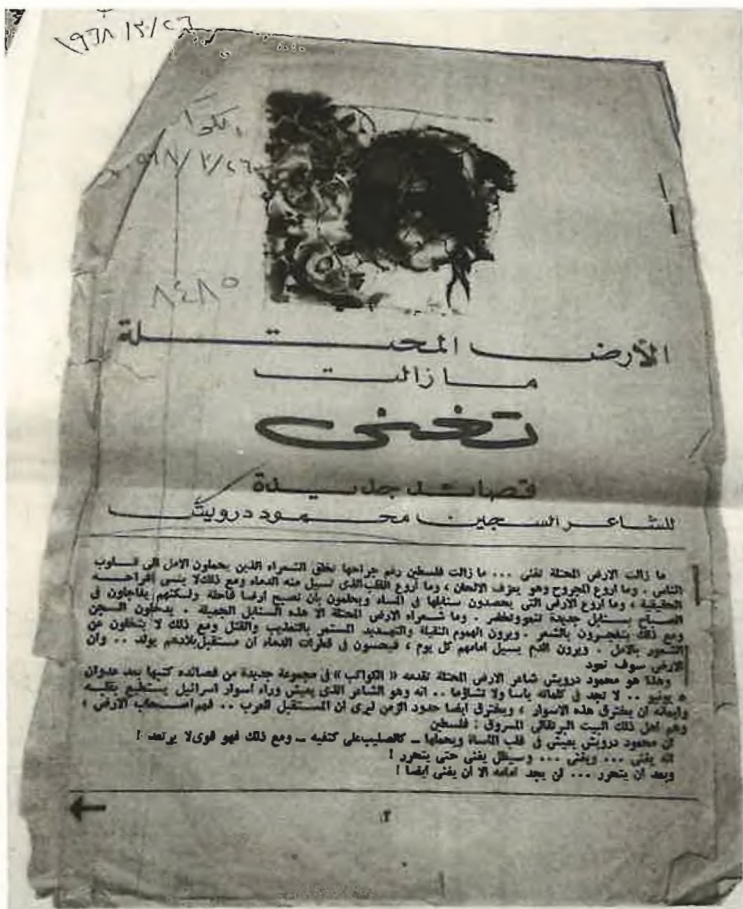 ١٩٦٨/٢/٢٦
٩٦٨/٢/٢٦
٨٤٨٥
الأرض المحتلة
مازالت
تغنى
قصائد جديدة
للشاعر السجين محمود درويش
ما زالت الارض المحتلة تغنى ... ما زالت فلسطين رغم جراحها تخلق الشعراء الذين يحملون الامل الى قلوب
الناس . وما اروع المجروح وهو يعزف الالحان ، وما اروع القلب الذى تسيل منه الدماء ومع ذلك لا ينسى افراحه
الحقيقية ، وما اروع الارض التى يحصدون سنابلها فى المساء ويحلمون بأن تصبح ارضا قاحلة ولكنهم يفاجأون فى
الصباح بسنابل جديدة تنمو وتخضر . وما شعراء الارض المحتلة الا هذه السنابل الجميلة . يدخلون السجن
ومع ذلك يتفجرون بالشعر . ويرون الهموم الثقيلة والتهديد المستمر بالتعذيب والقتل ومع ذلك لا يتخلون عن
الشعور بالامل . ويرون الدم يسيل امامهم كل يوم ، فيحسون فى قطرات الدماء ان مستقبل بلادهم يولد .. وان
الارض سوف تعود
وهذا هو محمود درويش شاعر الارض المحتلة تقدمه « الكواكب » فى مجموعة جديدة من قصائده كتبها بعد عدوان
٥ يونيو .. لا تجد فى كلماته يأسا ولا تشاؤما .. انه وهو الشاعر الذى يعيش وراء اسوار اسرائيل يستطيع بقلبه
وايمانه ان يخترق هذه الاسوار ، ويخترق ايضا حدود الزمن ليرى ان المستقبل للعرب .. فهم اصحاب الارض ،
وهم اهل ذلك البيت البرتقالى المسروق : فلسطين
ان محمود درويش يعيش فى قلب المأساة ويحملها ــ كالصليب على كتفيه ــ ومع ذلك فهو قوى لا يرتعد !
انه يغنى ... ويغنى ... وسيظل يغنى حتى يتحرر !
وبعد ان يتحرر ... لن يجد امامه الا ان يغنى ايضا !